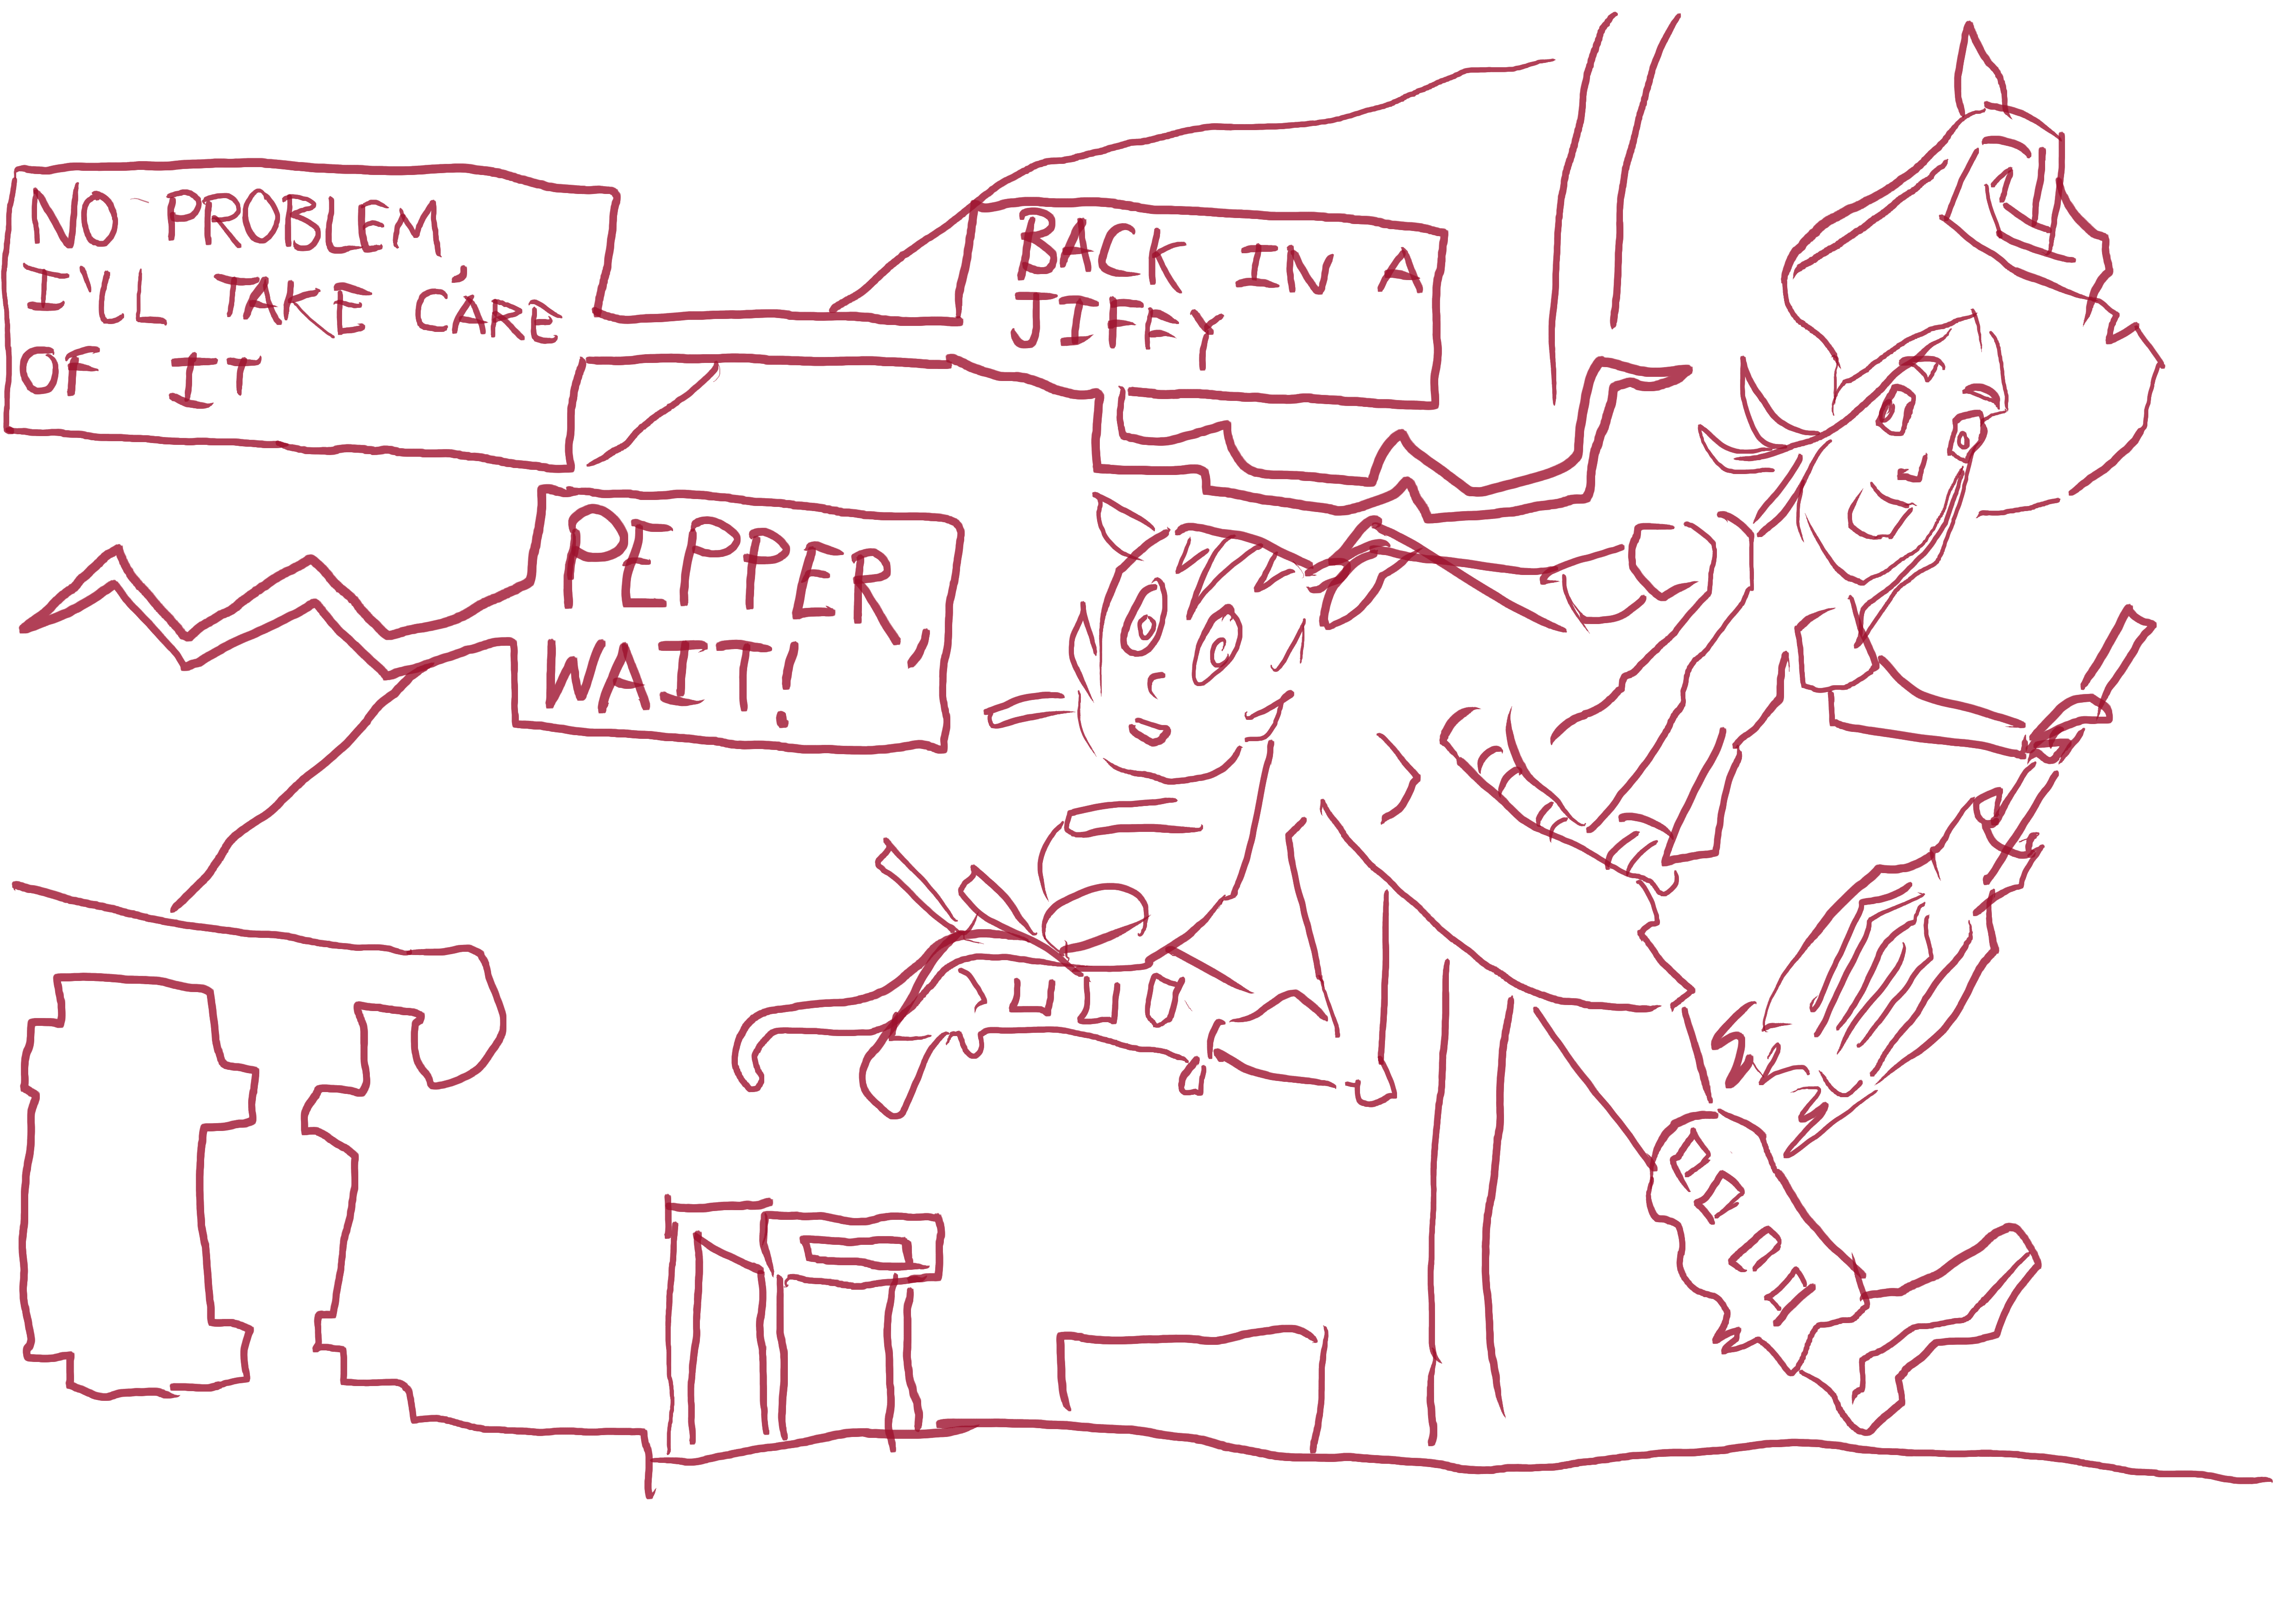 NO PROBLEM,
I'LL TAKE CARE
OF IT
BACK IN A
JIFFY
PEPPER,
WAIT!